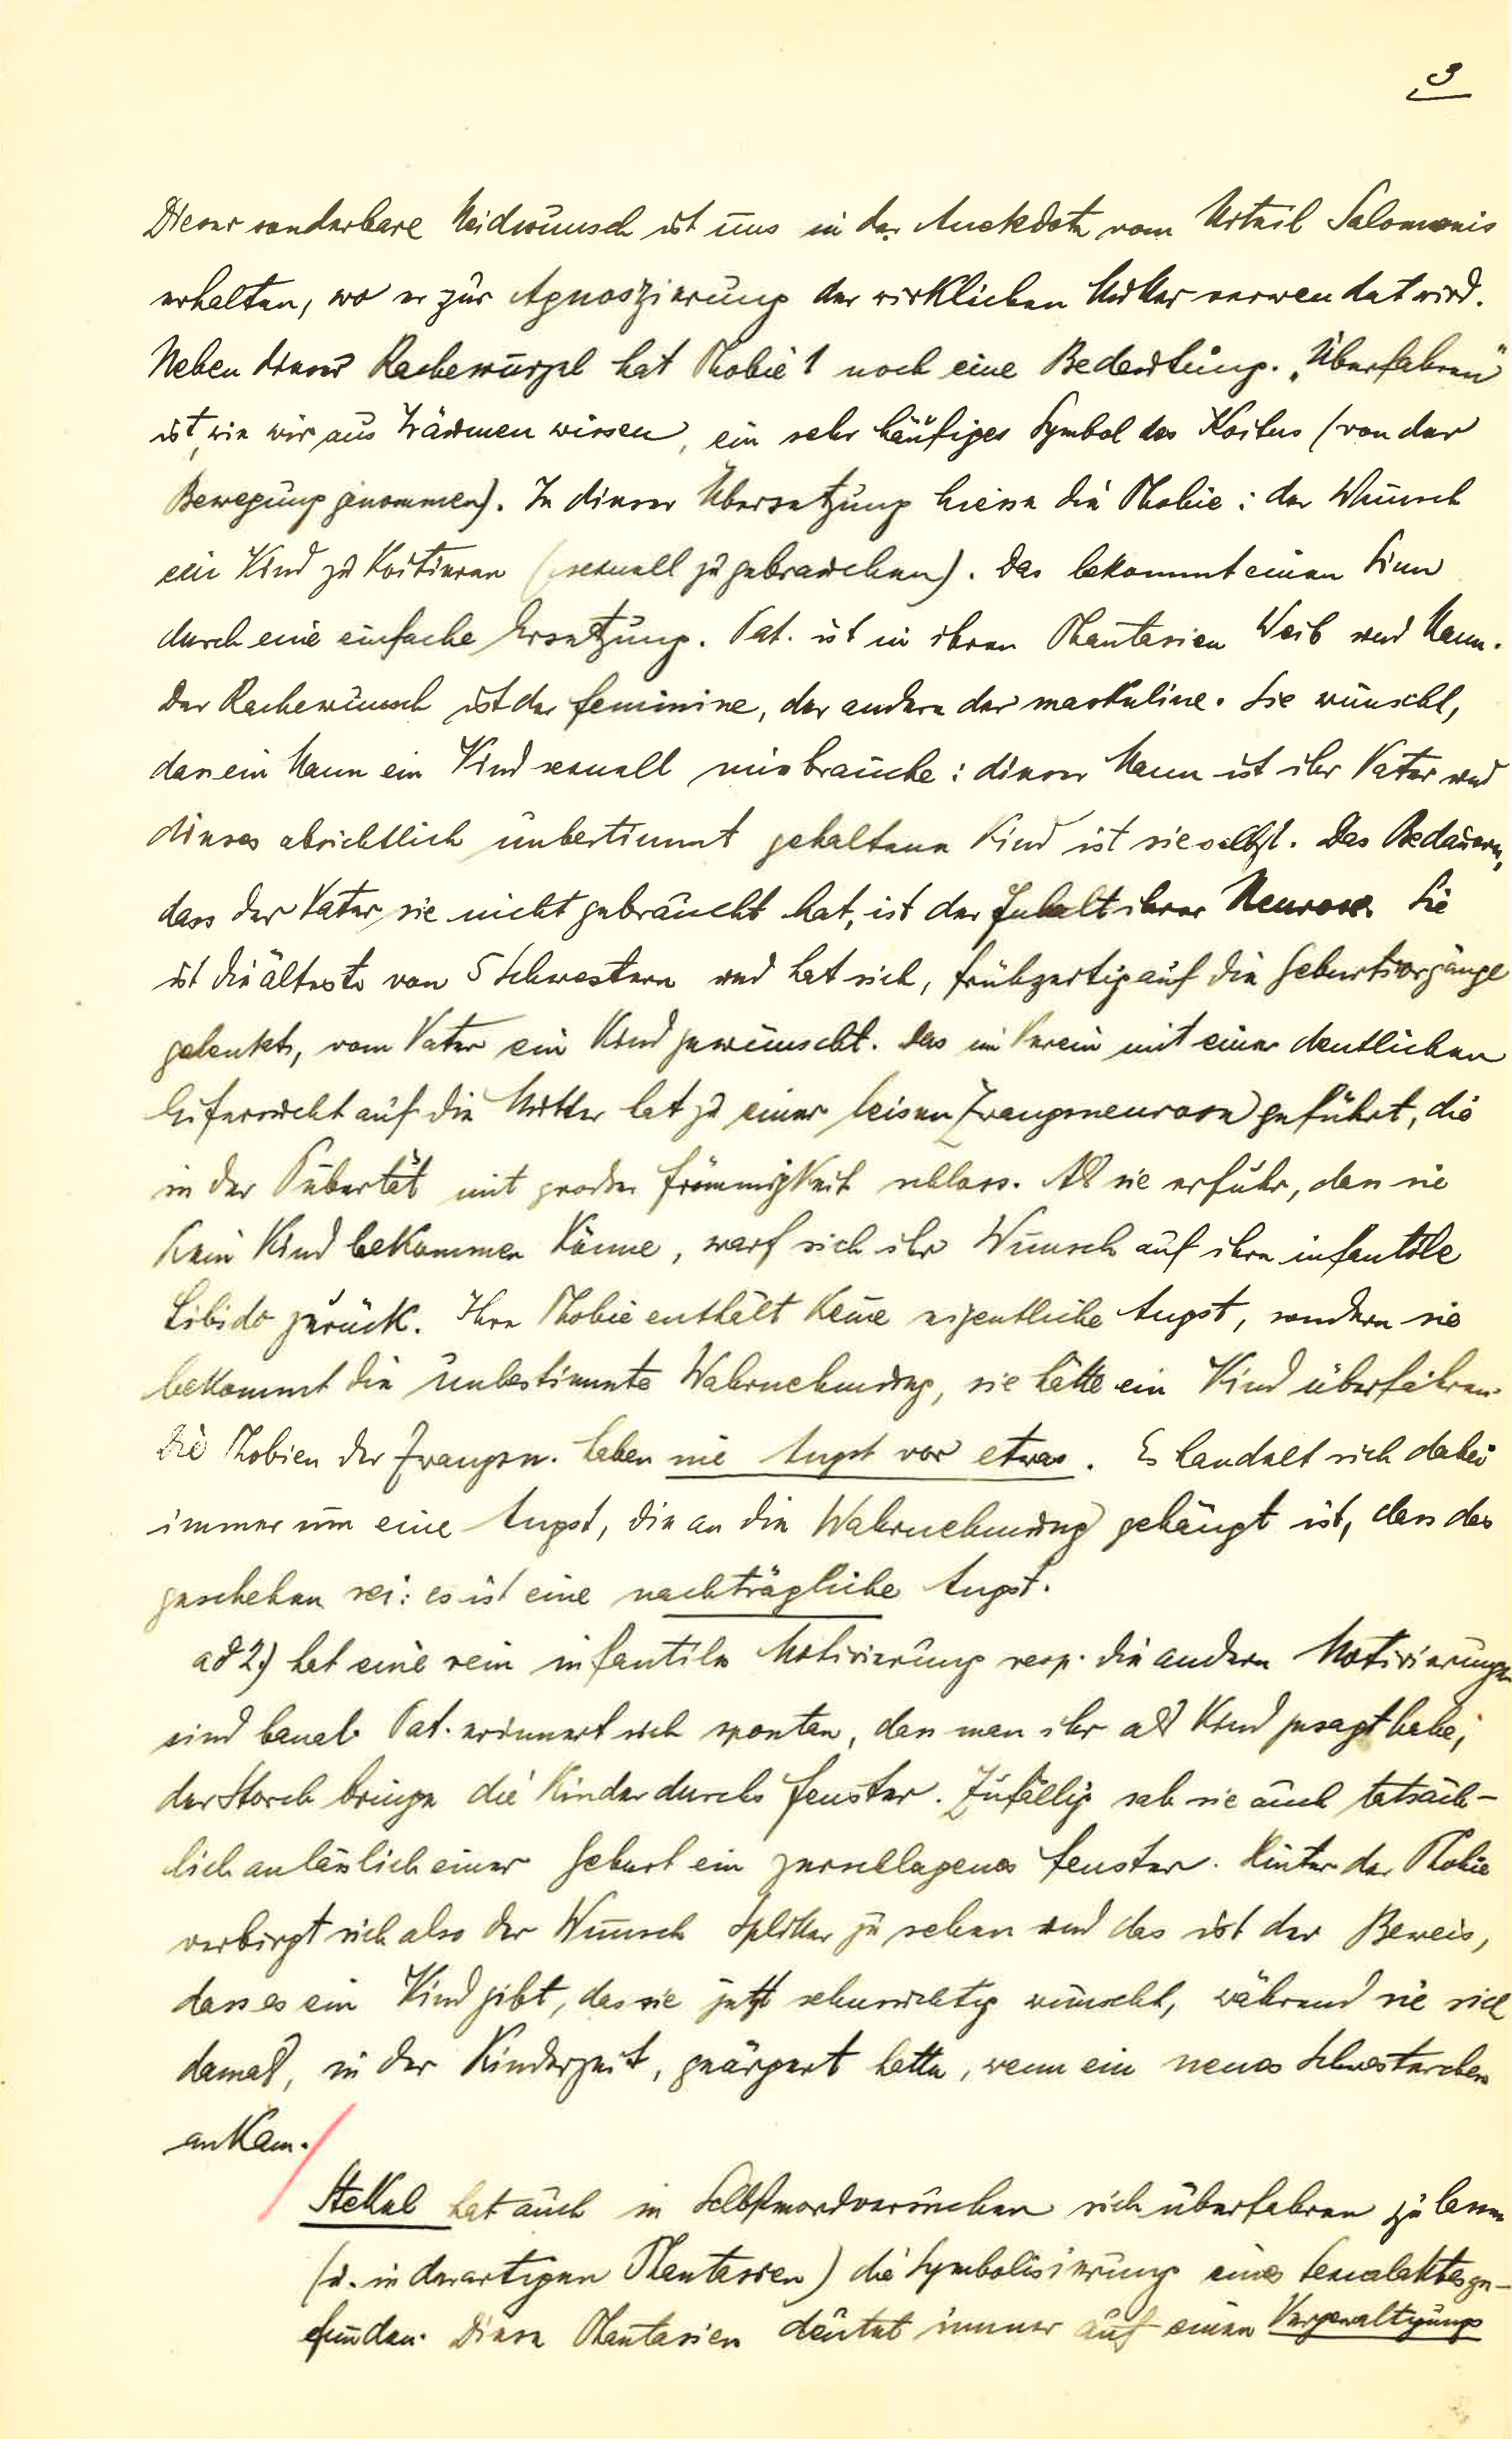 3
Dieser sonderbare Neidwunsch ist uns in der Anekdote vom Urteil Salomonis
erhalten, wo er zur Agnoszierung der wirklichen Mutter verwendet wird.
Neben dieser Rachewurzel hat Phobie 1 noch eine Bedeutung. „Überfahren"
ist, wie wir aus Träumen wissen, ein sehr häufiges Symbol des Koitus (von der
Bewegung genommen). In dieser Übersetzung hiesse die Phobie: der Wunsch
ein Kind zu koitieren (sexuell zu gebrauchen). Das bekommt einen Sinn
durch eine einfache Ersetzung. Pat. ist in ihren Phantasien Weib und Mann.
Der Rachewunsch ist der feminine, der andere der maskuline. Sie wünscht,
dass ein Mann ein Kind sexuell missbrauche: dieser Mann ist ihr Vater und
dieses absichtlich unbestimmt gehaltene Kind ist sie selbst. Das Bedauern,
dass der Vater sie nicht gebraucht hat, ist der Inhalt ihrer Neurose. Sie
ist die älteste von 5 Schwestern und hat sich, frühzeitig auf die Geburtsvorgänge
gelenkt, vom Vater ein Kind gewünscht. Das im Verein mit einer deutlichen
Eifersucht auf die Mutter hat zu einer leisen Zwangsneurose geführt, die
in der Pubertät mit grosser Frömmigkeit schloss. Als sie erfuhr, dass sie
kein Kind bekommen könne, warf sich ihr Wunsch auf ihre infantile
Libido zurück. Ihre Phobie enthält keine eigentliche Angst, sondern sie
bekommt die unbestimmte Wahrnehmung, sie hätte ein Kind überfahren.
Die Phobien der Zwangsn. haben nie Angst vor etwas. Es handelt sich dabei
immer um eine Angst, die an die Wahrnehmung gehängt ist, dass das
geschehen sei: es ist eine nachträgliche Angst.
ad 2.) hat eine rein infantile Motivierung resp. die andern Motivierungen
sind banal. Pat. erinnert sich spontan, dass man ihr als Kind gesagt habe,
der Storch bringe die Kinder durchs Fenster. Zufällig sah sie auch tatsäch-
lich anlässlich einer Geburt ein zerschlagenes Fenster. Hinter der Phobie
verbirgt sich also der Wunsch Splitter zu sehen und das ist der Beweis,
dass es ein Kind gibt, das sie jetzt sehnsüchtig wünscht, während sie sich
damals, in der Kinderzeit, geärgert hatte, wenn ein neues Schwesterchen
ankam.
Stekel hat auch in Selbstmordversuchen sich überfahren zu lassen
(u. in derartigen Phantasien) die Symbolisierung eines Sexualaktes ge-
funden. Diese Phantasien deutet immer auf einen Vergewaltigungs